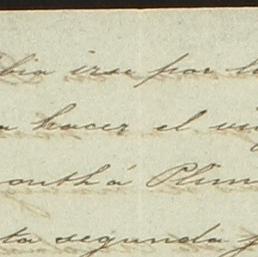 bia irse por l
a hacer el vi
outh á Plim
ta segunda